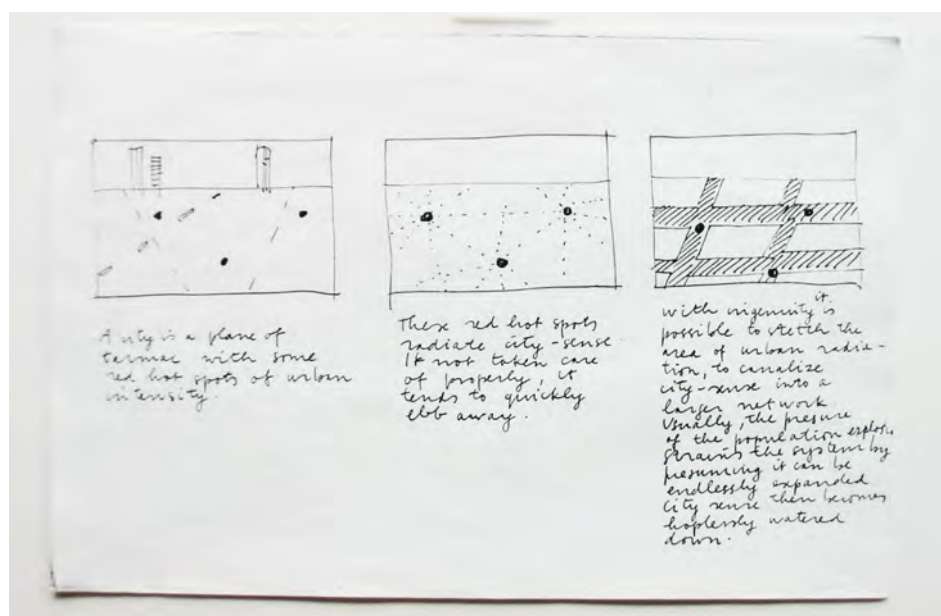 A city is a plane of
tarmac with some
red hot spots of urban
intensity.
These red hot spots
radiate city-sense.
If not taken care
of properly, it
tends to quickly
ebb away.
With ingenuity it is
possible to stetch the
area of urban radia-
tion, to canalize
city-sense into a
larger network
Usually, the presure
of the population explosi
strains the system by
presuming it can be
endlessly expanded
City sense then becomes
hoplessly watered
down.